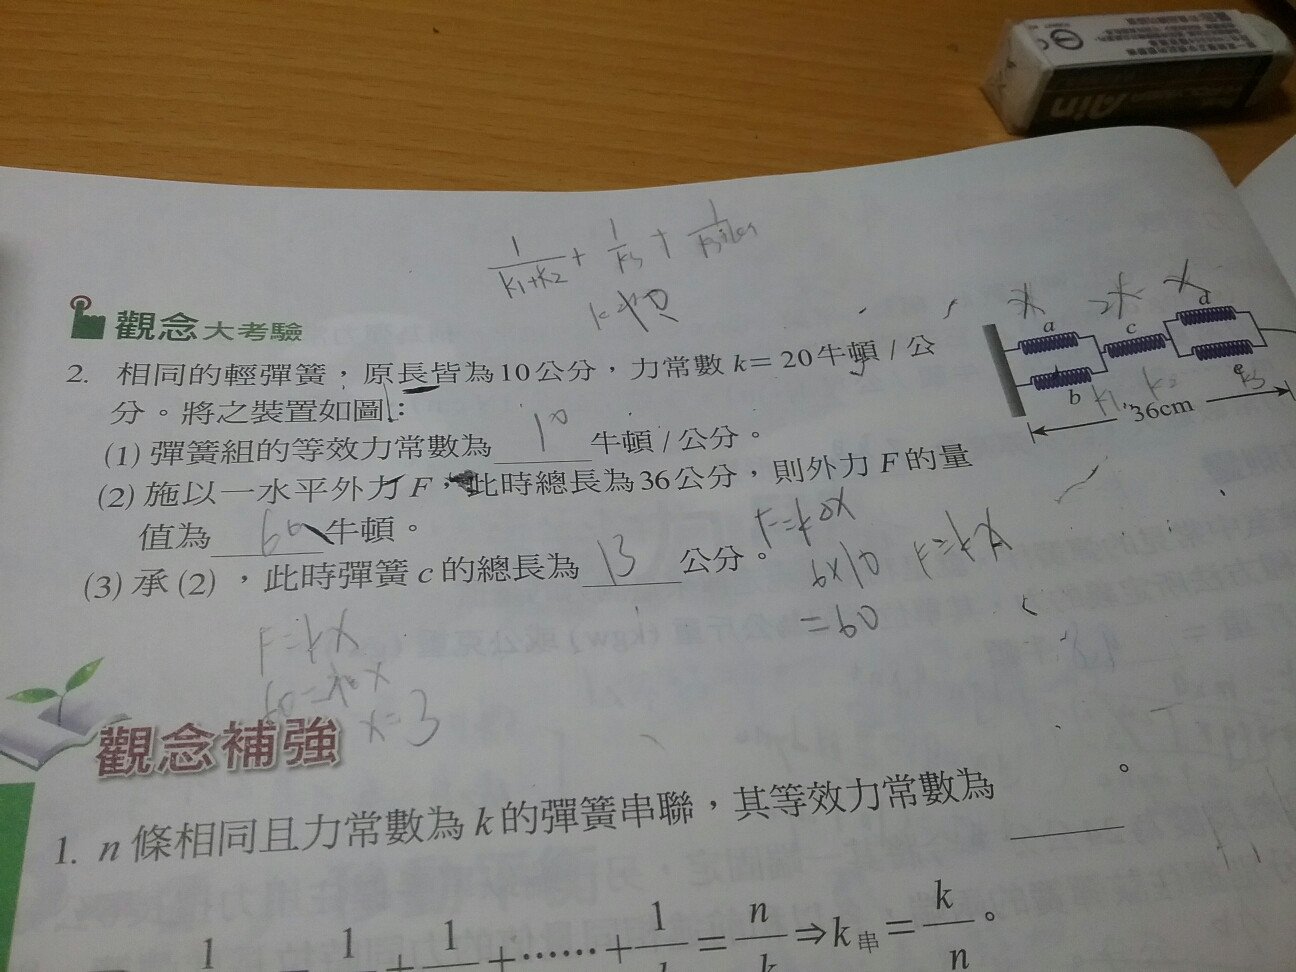 Ain
1/(k1+k2) + 1/k3 +
觀念大考驗
2. 相同的輕彈簧，原長皆為10公分，力常數 k = 20 牛頓 / 公
分。將之裝置如圖：
(1) 彈簧組的等效力常數為 10 牛頓 / 公分。
(2) 施以一水平外力 F，此時總長為36公分，則外力 F 的量
值為 60 牛頓。
(3) 承 (2)，此時彈簧 c 的總長為 13 公分。
x 2x x
a c d
b e
k1 k2 k3
36cm
F=kΔx
6×10 F=kx
=60
F=kx
x=3
觀念補強
1. n 條相同且力常數為 k 的彈簧串聯，其等效力常數為 ＿＿＿。
1 1 + 1 +……+ 1 = n/k ⇒ k串 = k/n。